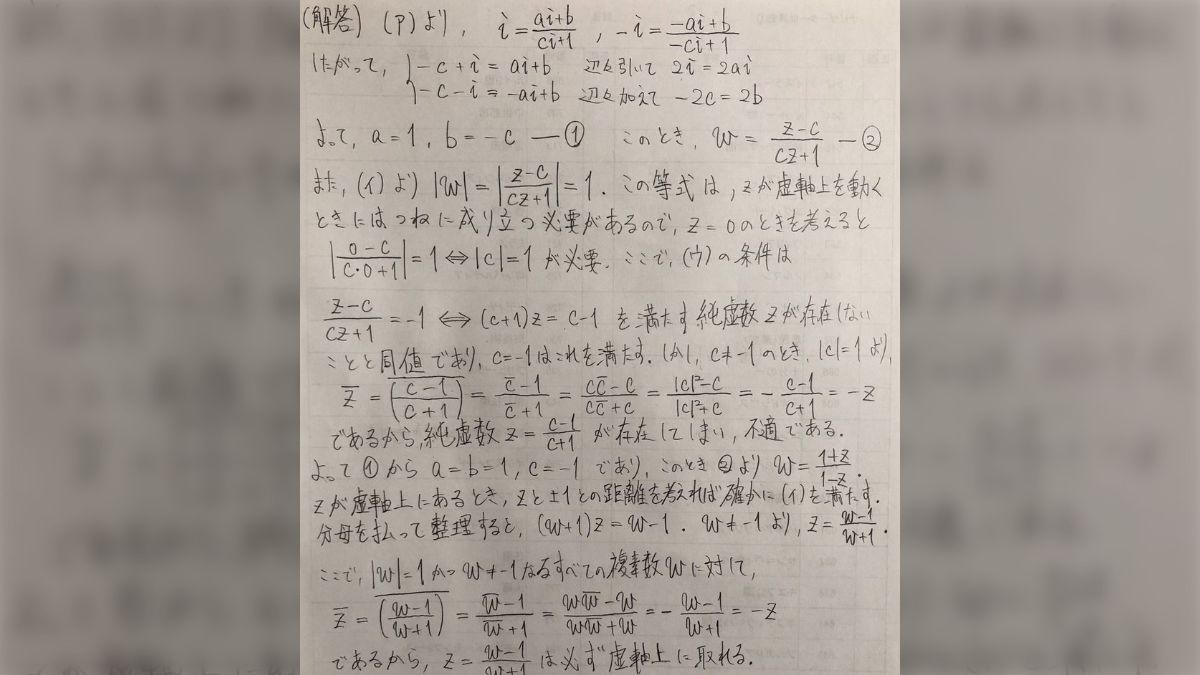 (解答) (ア)より, i = (ai+b)/(ci+1) , -i = (-ai+b)/(-ci+1)
したがって, { -c+i = ai+b 辺々引いて 2i = 2ai
-c-i = -ai+b 辺々加えて -2c = 2b
よって, a=1, b=-c —① このとき, w = (z-c)/(cz+1) —②
また, (イ)より |w| = |(z-c)/(cz+1)| = 1. この等式は, zが虚軸上を動く
ときにはつねに成り立つ必要があるので, z=0のときを考えると
|(0-c)/(c・0+1)| = 1 ⇔ |c|=1 が必要. ここで, (ウ)の条件は
(z-c)/(cz+1) = -1 ⇔ (c+1)z = c-1 を満たす純虚数zが存在しない
ことと同値であり, c=-1はこれを満たす. しかし, c≠-1のとき, |c|=1より,
z̄ = \overline{((c-1)/(c+1))} = (c̄-1)/(c̄+1) = (cc̄-c)/(cc̄+c) = (|c|²-c)/(|c|²+c) = -(c-1)/(c+1) = -z
であるから, 純虚数 z = (c-1)/(c+1) が存在してしまい, 不適である.
よって①から a=b=1, c=-1 であり, このとき②より w = (1+z)/(1-z).
zが虚軸上にあるとき, zと±1との距離を考えれば確かに(イ)を満たす.
分母を払って整理すると, (w+1)z = w-1. w≠-1より, z = (w-1)/(w+1).
ここで, |w|=1かつw≠-1なるすべての複素数wに対して,
z̄ = \overline{((w-1)/(w+1))} = (w̄-1)/(w̄+1) = (ww̄-w)/(ww̄+w) = -(w-1)/(w+1) = -z
であるから, z = (w-1)/(w+1) は必ず虚軸上に取れる.